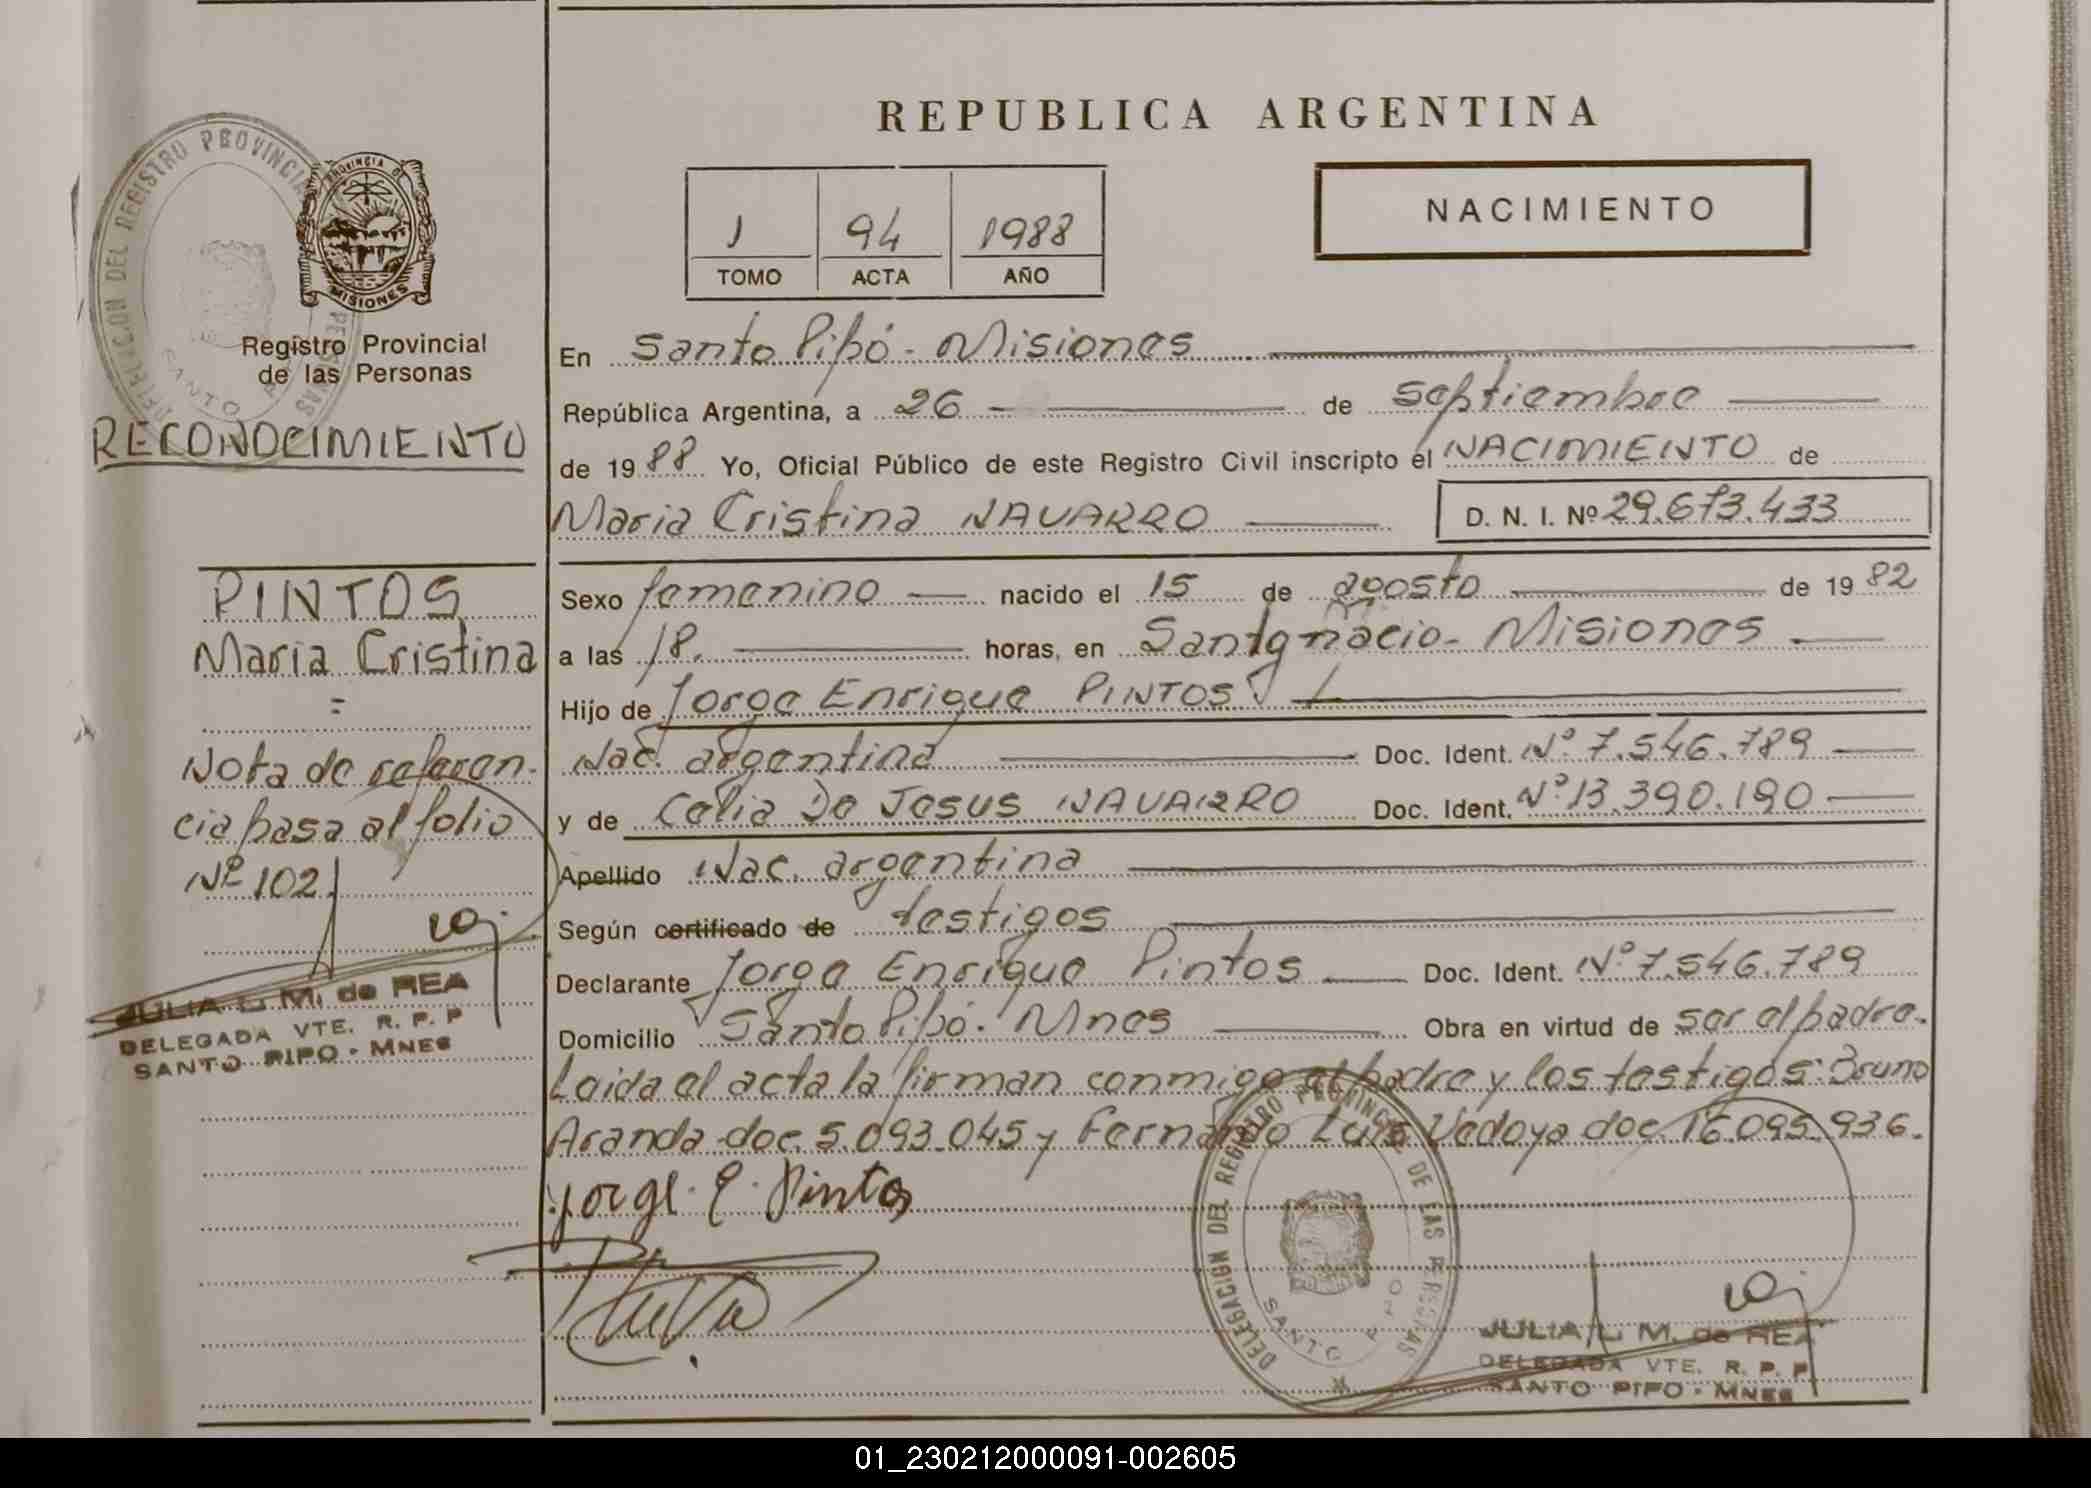 REPUBLICA ARGENTINA
NACIMIENTO
1 94 1988
TOMO ACTA AÑO
DELEGACION DEL REGISTRO PROVINCIAL
PROVINCIA DE
MISIONES
Registro Provincial
de las Personas
RECONOCIMIENTO
PINTOS
Maria Cristina
=
Nota de referen-
cia pasa al folio
Nº 102.
JULIA L. M. de REA
DELEGADA VTE. R. P. P
SANTO PIPO - MNES
En Santo Pipó - Misiones
República Argentina, a 26 de septiembre
de 1988 Yo, Oficial Público de este Registro Civil inscripto el NACIMIENTO de
Maria Cristina NAVARRO D. N. I. Nº 29.673.433
Sexo femenino nacido el 15 de agosto de 1982
a las 18. horas, en San Ignacio - Misiones
Hijo de Jorge Enrique PINTOS
Nac. argentina Doc. Ident. Nº 7.546.789
y de Celia De Jesus NAVARRO Doc. Ident. Nº 13.390.190
Apellido Nac. argentina
Según certificado de testigos
Declarante Jorge Enrique Pintos Doc. Ident. Nº 7.546.789
Domicilio Santo Pipó. Mnes Obra en virtud de ser el padre.
Leida el acta la firman conmigo el padre y los testigos: Bruno
Aranda doc. 5.093.045 y Fernando Luis Vedoya doc. 16.095.936.
Jorge. E. Pintos
DELEGACION DEL REGISTRO PROVINCIAL DE LAS PERSONAS
SANTO PIPO
JULIA L. M. de REA
DELEGADA VTE. R. P. P
SANTO PIPO - MNES
01_230212000091-002605